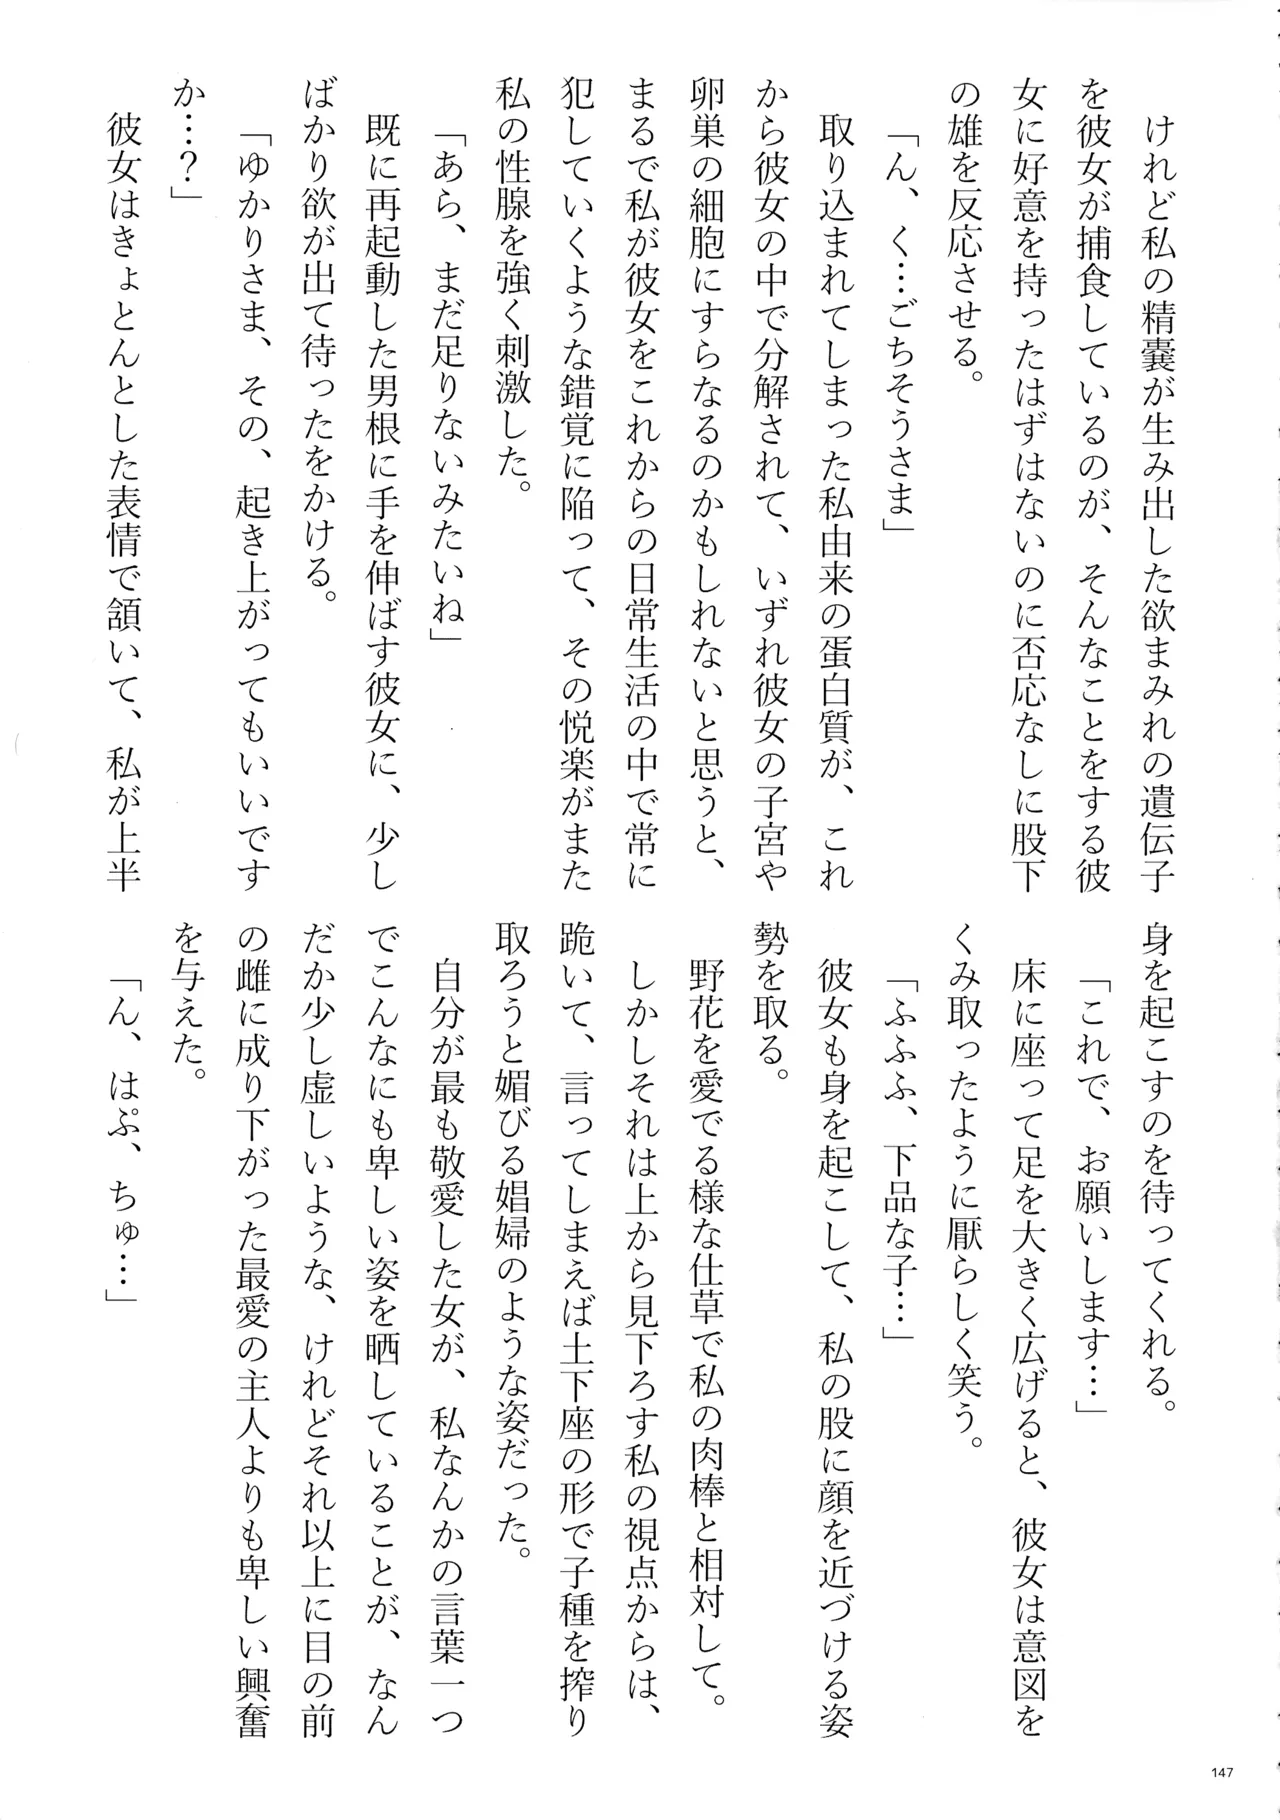 けれど私の精嚢が生み出した欲まみれの遺伝子
を彼女が捕食しているのが、そんなことをする彼
女に好意を持ったはずはないのに否応なしに股下
の雄を反応させる。
「ん、く…ごちそうさま」
取り込まれてしまった私由来の蛋白質が、これ
から彼女の中で分解されて、いずれ彼女の子宮や
卵巣の細胞にすらなるのかもしれないと思うと、
まるで私が彼女をこれからの日常生活の中で常に
犯していくような錯覚に陥って、その悦楽がまた
私の性腺を強く刺激した。
「あら、まだ足りないみたいね」
既に再起動した男根に手を伸ばす彼女に、少し
ばかり欲が出て待ったをかける。
「ゆかりさま、その、起き上がってもいいです
か…？」
彼女はきょとんとした表情で頷いて、私が上半
身を起こすのを待ってくれる。
「これで、お願いします…」
床に座って足を大きく広げると、彼女は意図を
くみ取ったように厭らしく笑う。
「ふふふ、下品な子…」
彼女も身を起こして、私の股に顔を近づける姿
勢を取る。
野花を愛でる様な仕草で私の肉棒と相対して。
しかしそれは上から見下ろす私の視点からは、
跪いて、言ってしまえば土下座の形で子種を搾り
取ろうと媚びる娼婦のような姿だった。
自分が最も敬愛した女が、私なんかの言葉一つ
でこんなにも卑しい姿を晒していることが、なん
だか少し虚しいような、けれどそれ以上に目の前
の雌に成り下がった最愛の主人よりも卑しい興奮
を与えた。
「ん、はぷ、ちゅ…」
147